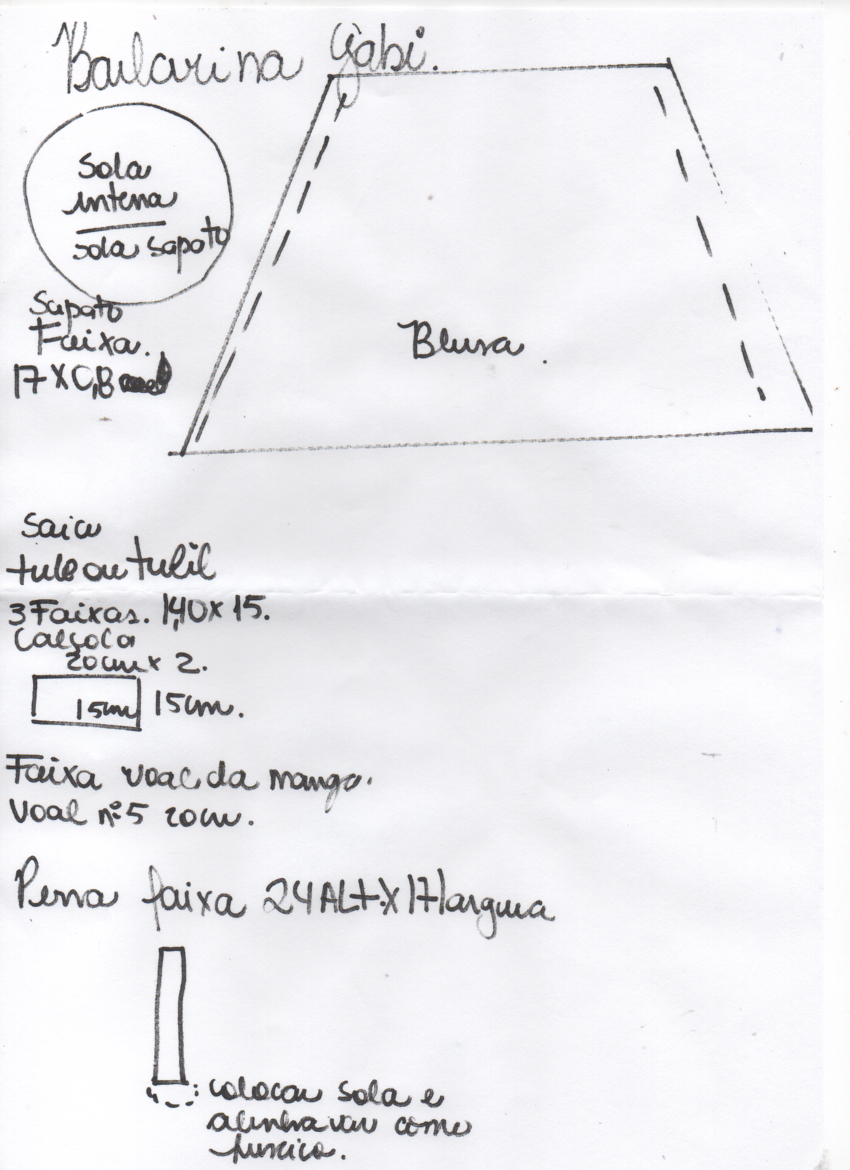 Bailarina Gabi.
Sola
intena
sola sapato
Sapato
Faixa.
17 X 0,8
Blusa.
Saia
tule ou tulil
3 Faixas. 1,40 x 15.
Calçola
20cm x 2.
15cm 15cm.
Faixa voal da manga.
Voal nº 5 20cm.
Perna faixa 24 ALT. X 17 largura
colocar sola e
alinhavar como
fuxico.